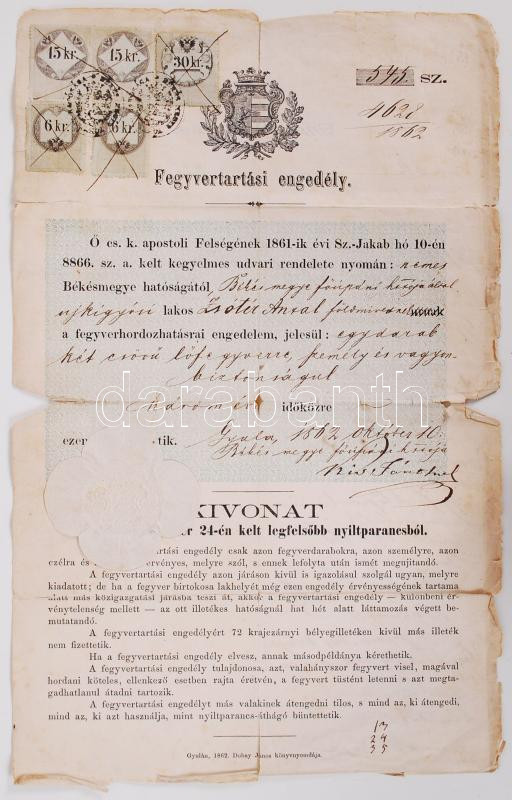 15 kr. 15 kr. 30 kr.
6 kr. 6 kr.
545 SZ.
4628
1862
Fegyvertartási engedély.
Ő cs. k. apostoli Felségének 1861-ik évi Sz.-Jakab hó 10-én
8866. sz. a. kelt kegyelmes udvari rendelete nyomán: nemes
Békésmegye hatóságától, Békés megye főispáni
ujkigyósi lakos Antal földmivesnek
a fegyverhordozhatásrai engedelem, jelesül: egy darab
két csövű lőfegyverre, személy és vagyon
biztonságul
három évi időközre
ezer tik. Gyula, 1862 Oktober 10.
Békés megye főispáni
darabanth
KIVONAT
er 24-én kelt legfelsőbb nyiltparancsból.
tartási engedély csak azon fegyverdarabokra, azon személyre, azon
czélra és érvényes, melyre szól, s ennek lefolyta után ismét megujítandó.
A fegyvertartási engedély azon járáson kivül is igazolásul szolgál ugyan, melyre
kiadatott; de ha a fegyver birtokosa lakhelyét még ezen engedély érvényességének tartama
alatt más közigazgatási járásba teszi át, akkor a fegyvertartási engedély — különbeni ér-
vénytelenség mellett — az ott illetékes hatóságnál hat hét alatt láttamozás végett be-
mutatandó.
A fegyvertartási engedélyért 72 krajczárnyi bélyegilletéken kivül más illeték
nem fizettetik.
Ha a fegyvertartási engedély elvesz, annak másodpéldánya kérethetik.
A fegyvertartási engedély tulajdonosa, azt, valahányszor fegyvert visel, magával
hordani köteles, ellenkező esetben rajta éretvén, a fegyvert tüstént letenni s azt megta-
gadhatlanul átadni tartozik.
A fegyvertartási engedélyt más valakinek átengedni tilos, s mind az, ki átengedi,
mind az, ki azt használja, mint nyiltparancs-áthágó büntettetik.
13
24
35
Gyulán, 1862. Dobay János könyvnyomdája.